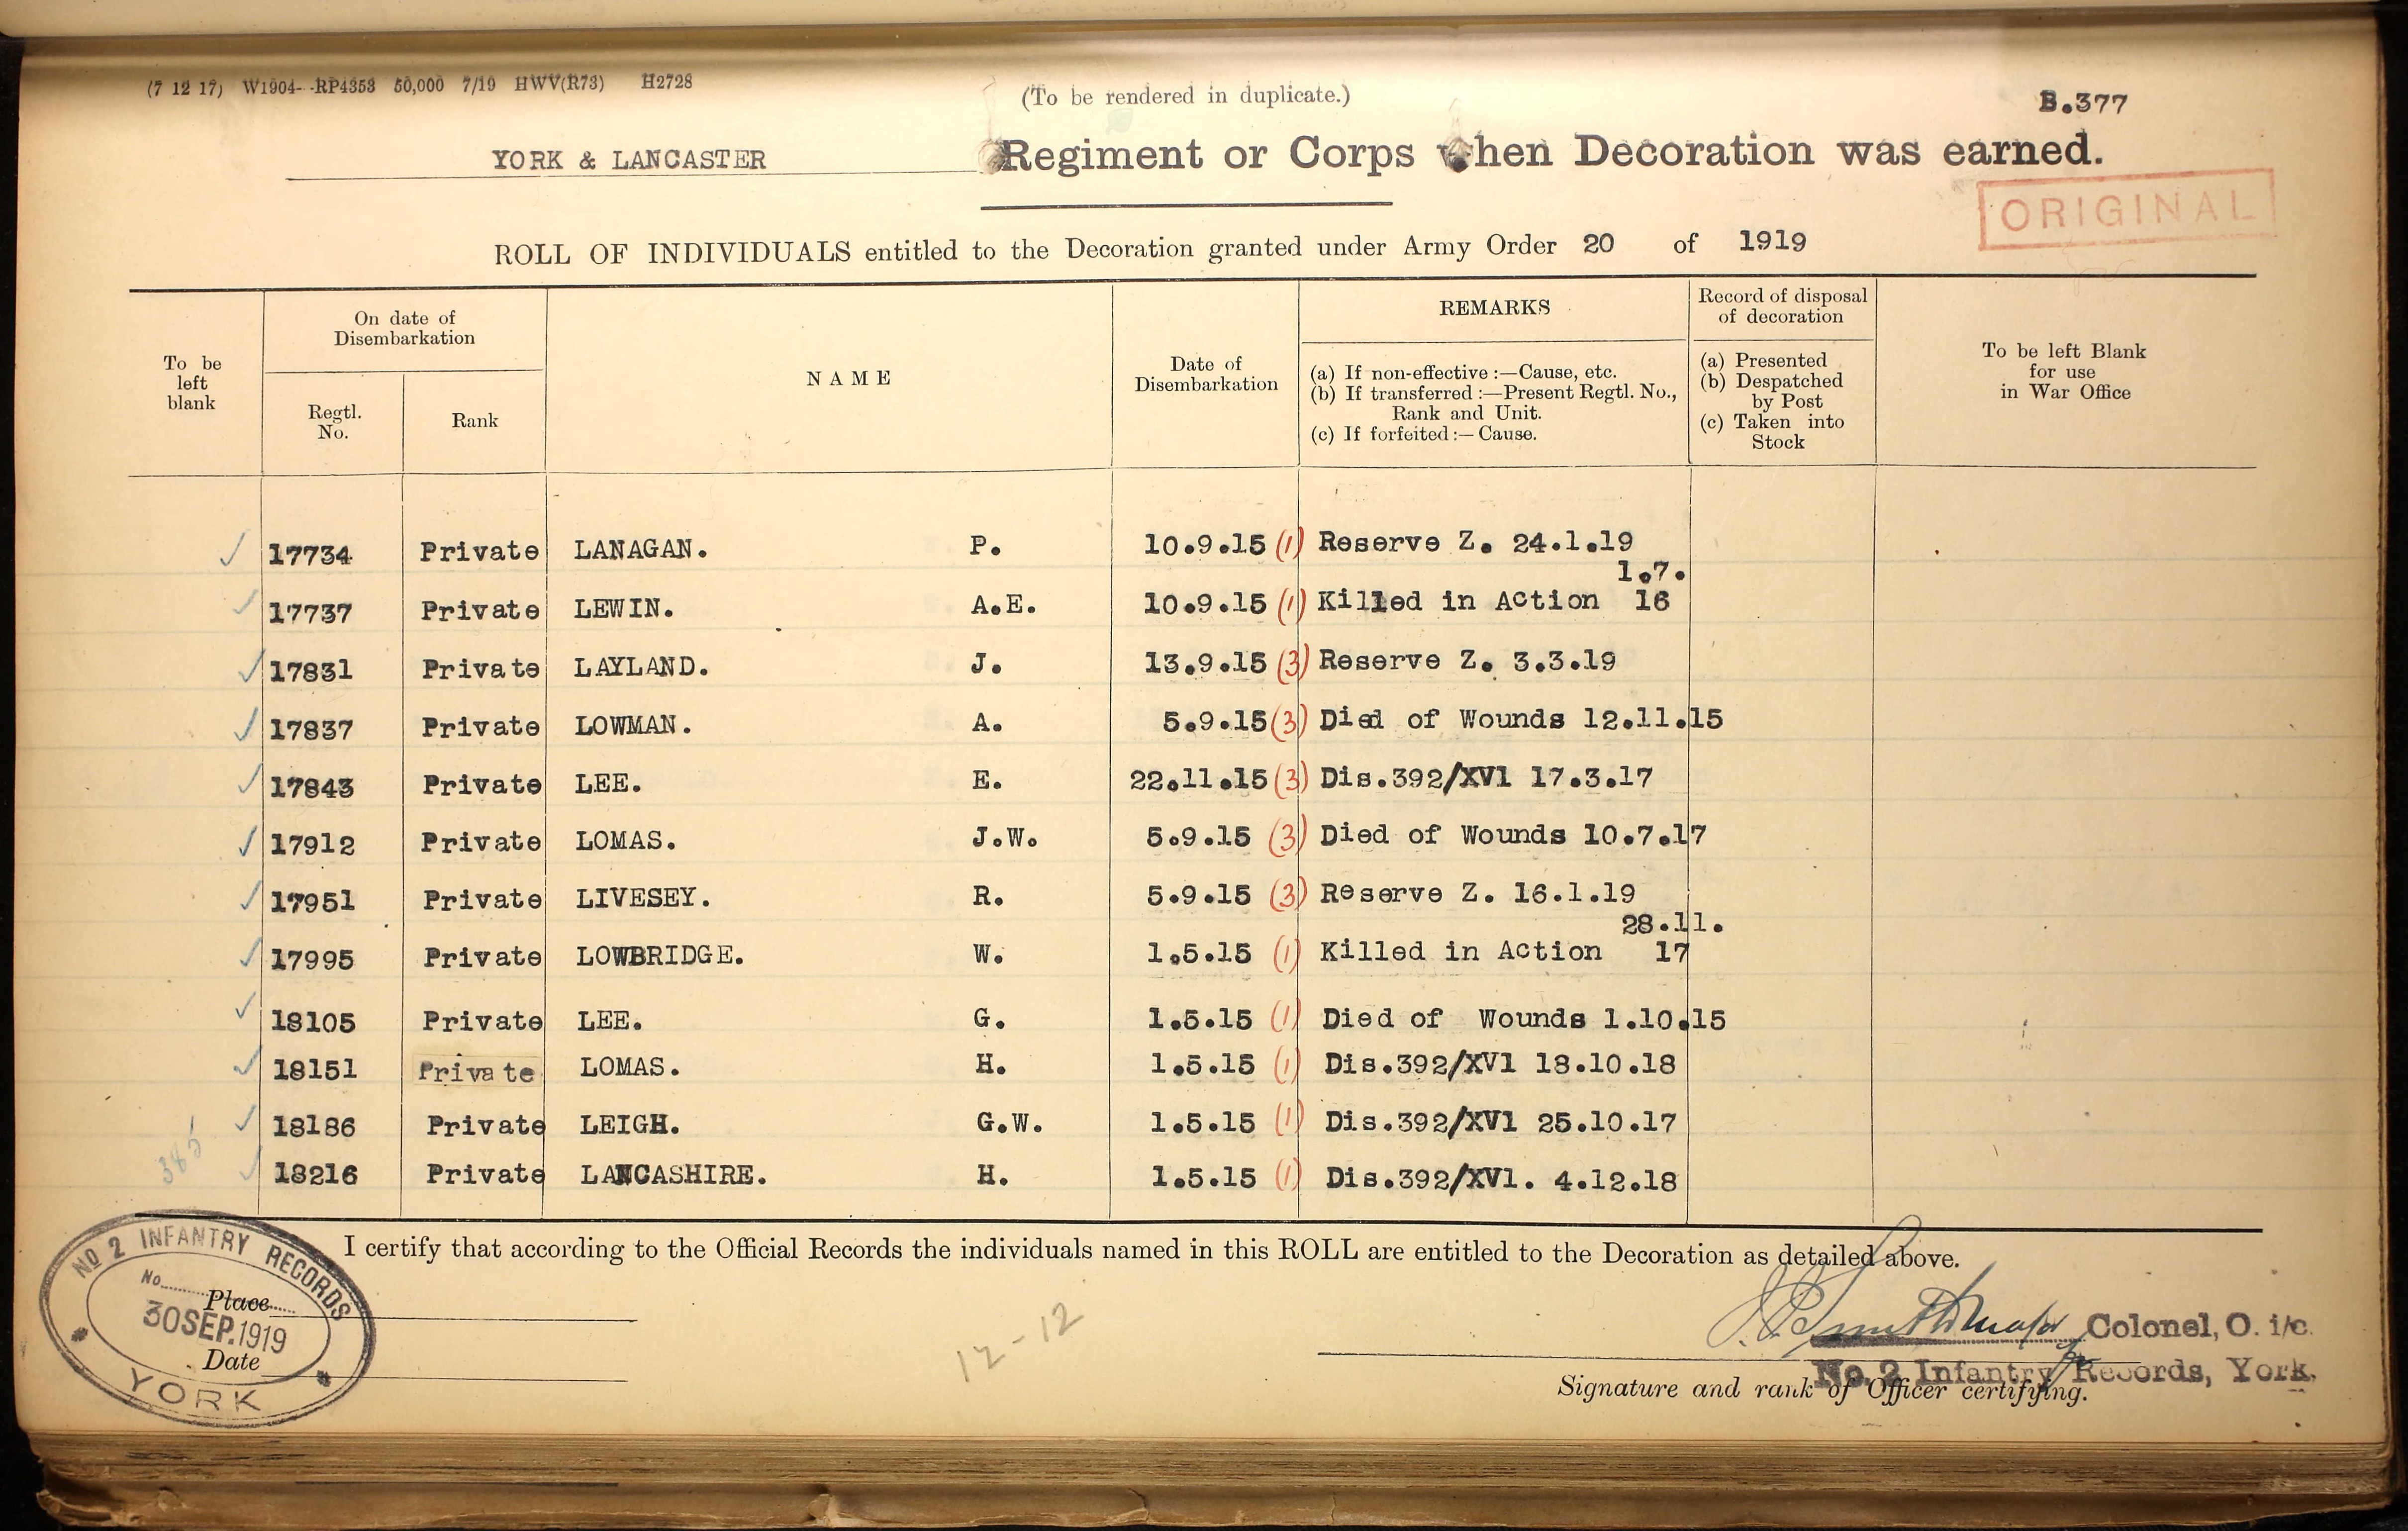 (7 12 17) W1904- -RP4353 50,000 7/19 HWV(R73) H2728
(To be rendered in duplicate.)
B.377
YORK & LANCASTER Regiment or Corps when Decoration was earned.
ORIGINAL
ROLL OF INDIVIDUALS entitled to the Decoration granted under Army Order 20 of 1919
To be left blank
On date of Disembarkation
Regtl. No.
Rank
NAME
Date of Disembarkation
REMARKS
(a) If non-effective :—Cause, etc.
(b) If transferred :—Present Regtl. No., Rank and Unit.
(c) If forfeited :— Cause.
Record of disposal of decoration
(a) Presented
(b) Despatched by Post
(c) Taken into Stock
To be left Blank for use in War Office
✓ 17734 Private LANAGAN. P. 10.9.15 (1) Reserve Z. 24.1.19
✓ 17737 Private LEWIN. A.E. 10.9.15 (1) Killed in Action 1.7.16
✓ 17831 Private LAYLAND. J. 13.9.15 (3) Reserve Z. 3.3.19
✓ 17837 Private LOWMAN. A. 5.9.15 (3) Died of Wounds 12.11.15
✓ 17843 Private LEE. E. 22.11.15 (3) Dis.392/XVl 17.3.17
✓ 17912 Private LOMAS. J.W. 5.9.15 (3) Died of Wounds 10.7.17
✓ 17951 Private LIVESEY. R. 5.9.15 (3) Reserve Z. 16.1.19
✓ 17995 Private LOWBRIDGE. W. 1.5.15 (1) Killed in Action 28.11.17
✓ 18105 Private LEE. G. 1.5.15 (1) Died of Wounds 1.10.15
✓ 18151 Private LOMAS. H. 1.5.15 (1) Dis.392/XVl 18.10.18
✓ 18186 Private LEIGH. G.W. 1.5.15 (1) Dis.392/XVl 25.10.17
385
✓ 18216 Private LANCASHIRE. H. 1.5.15 (1) Dis.392/XVl. 4.12.18
I certify that according to the Official Records the individuals named in this ROLL are entitled to the Decoration as detailed above.
No 2 INFANTRY RECORDS
No
Place
30 SEP. 1919
Date
YORK
12-12
Smith Major
Colonel, O. i/c.
No. 2 Infantry Records, York.
Signature and rank of Officer certifying.